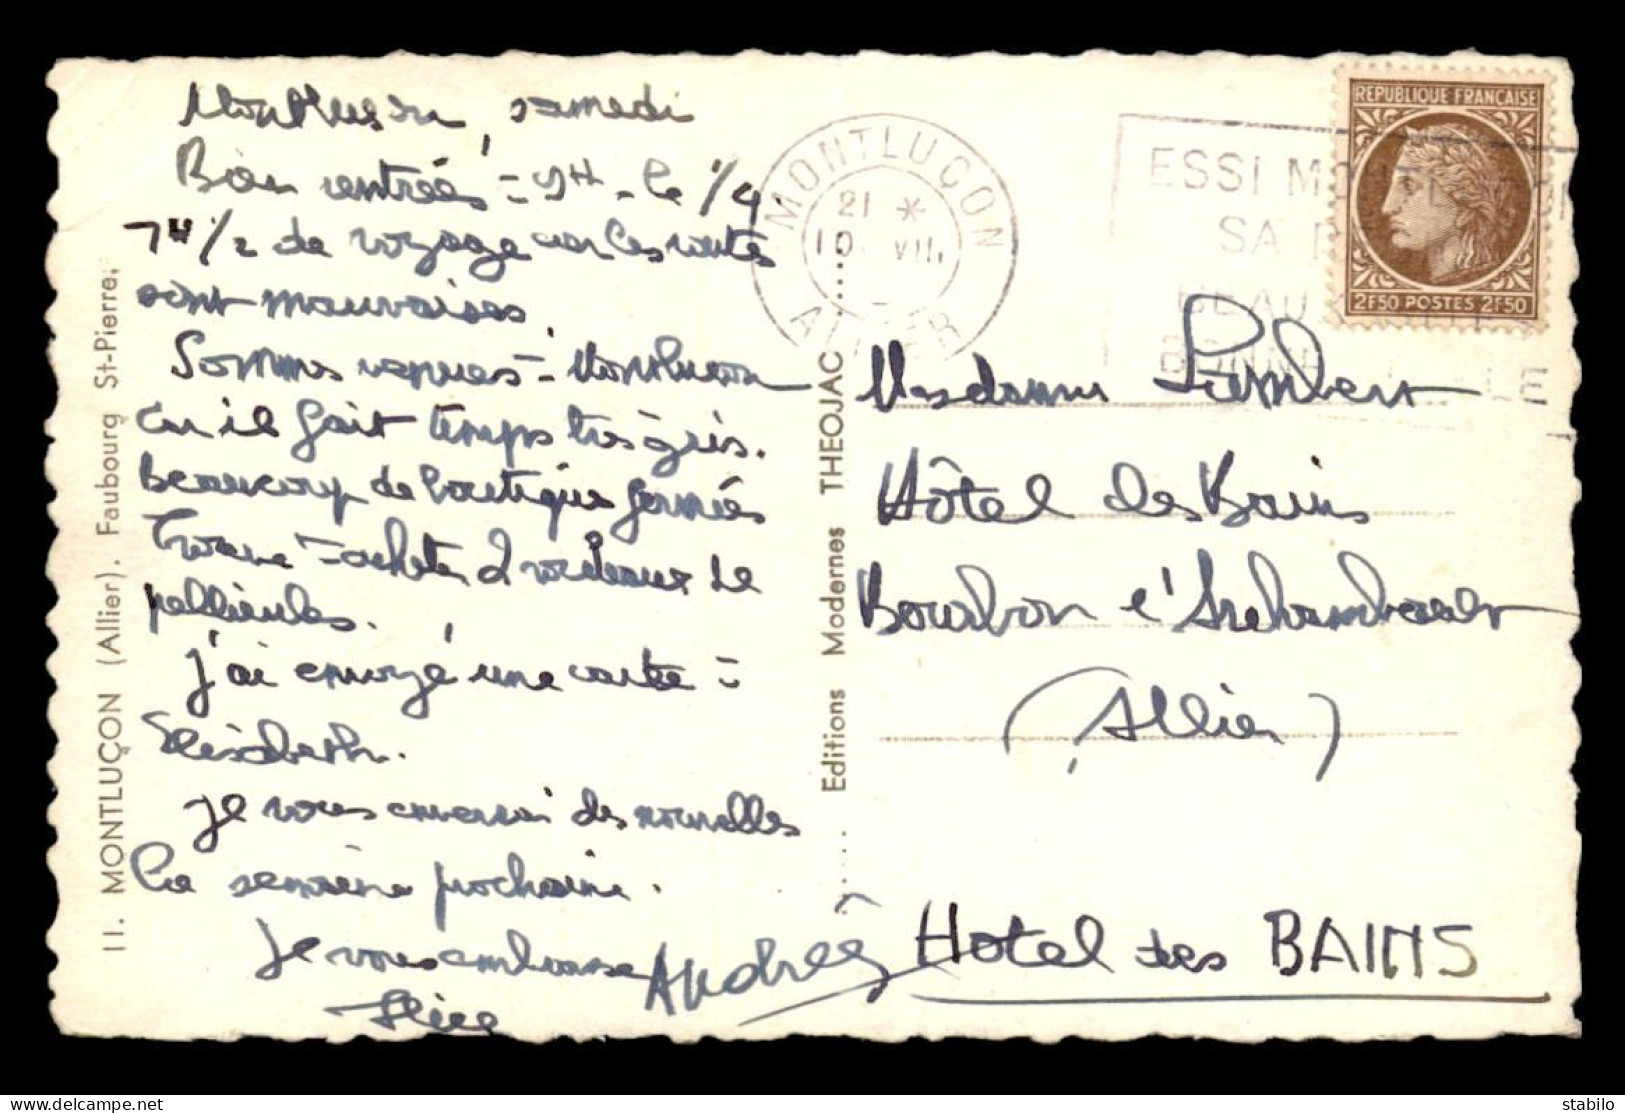 Montluçon, samedi
Bien rentrés à 9H le 1/4
7H 1/2 de voyage car les routes
sont mauvaises.
Sommes venues à Montluçon
car il fait temps très gris.
Beaucoup de boutiques fermées
à acheter 2 rouleaux de
pellicules.
J'ai envoyé une carte à
Elisabeth.
Je vous enverrai des nouvelles
la semaine prochaine.
Je vous embrasse
Alice
Andrée
11. MONTLUÇON (Allier). Faubourg St-Pierre.
Editions Modernes THEOJAC
MONTLUÇON
21 *
10 VII
ALLIER
ESSI MO
SA
BEAU
BONNE
REPUBLIQUE FRANÇAISE
2F50 POSTES 2F50
Mesdames Lambert
Hôtel des Bains
Bourbon l'Archambault
(Allier)
Hotel des BAINS
stabilo